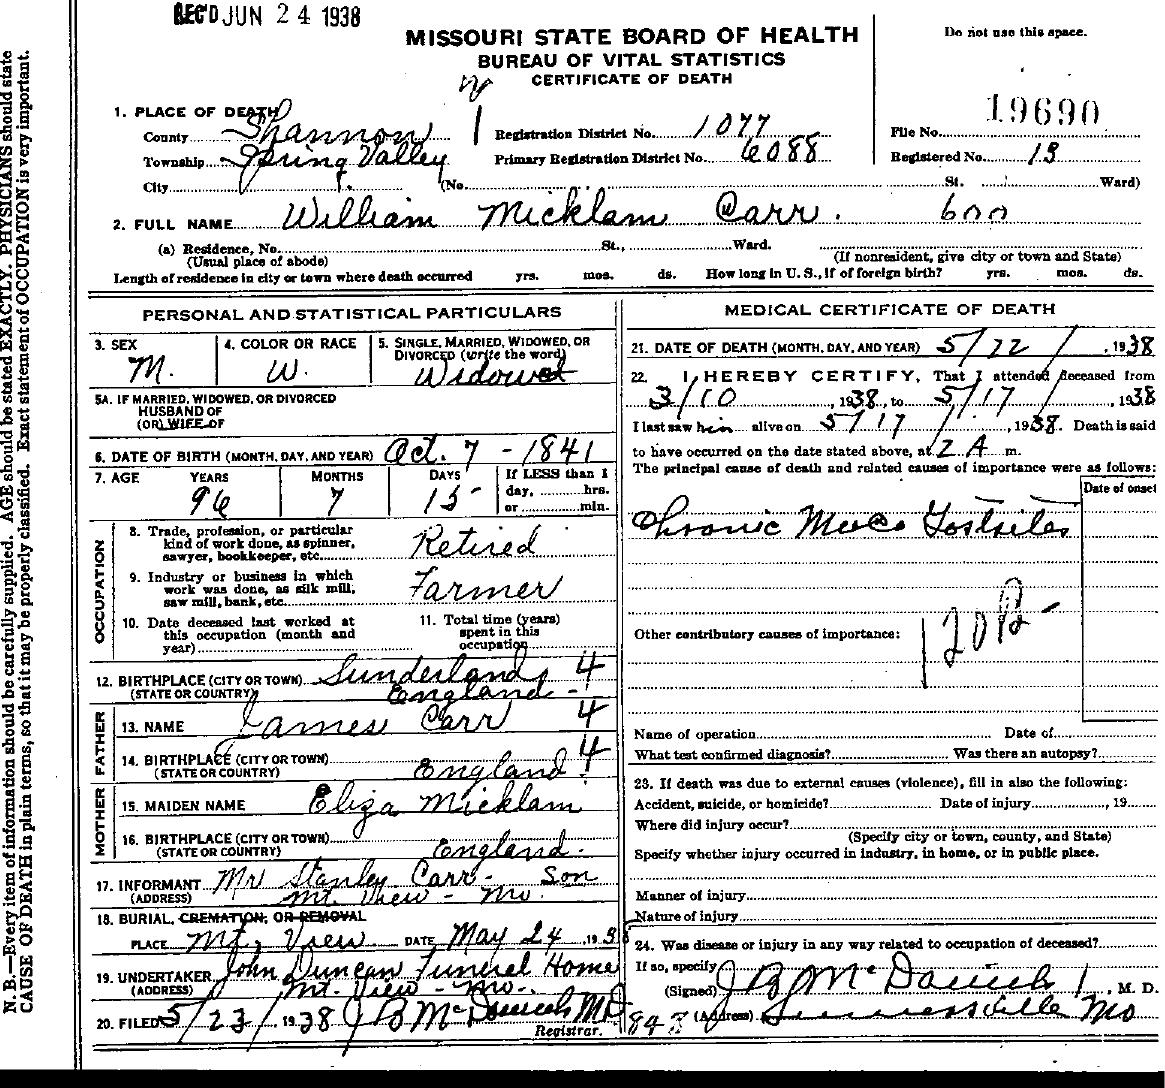 REC'D JUN 24 1938
MISSOURI STATE BOARD OF HEALTH
BUREAU OF VITAL STATISTICS
CERTIFICATE OF DEATH
Do not use this space.
1. PLACE OF DEATH
County Shannon
Township Spring Valley
City (No. St. Ward)
Registration District No. 1077
Primary Registration District No. 6088
19690
File No.
Registered No. 13
2. FULL NAME William Micklam Carr. 600
(a) Residence, No. St., Ward.
(Usual place of abode) (If nonresident, give city or town and State)
Length of residence in city or town where death occurred yrs. mos. ds. How long in U. S., if of foreign birth? yrs. mos. ds.
PERSONAL AND STATISTICAL PARTICULARS
3. SEX M.
4. COLOR OR RACE W.
5. SINGLE, MARRIED, WIDOWED, OR DIVORCED (write the word) Widowed
5A. IF MARRIED, WIDOWED, OR DIVORCED
HUSBAND OF
(OR) WIFE OF
6. DATE OF BIRTH (MONTH, DAY, AND YEAR) Oct. 7 - 1841
7. AGE YEARS MONTHS DAYS If LESS than 1
day, hrs.
or min.
96 7 15
OCCUPATION
8. Trade, profession, or particular
kind of work done, as spinner,
sawyer, bookkeeper, etc. Retired
9. Industry or business in which
work was done, as silk mill,
saw mill, bank, etc. Farmer
10. Date deceased last worked at
this occupation (month and
year)
11. Total time (years)
spent in this
occupation
12. BIRTHPLACE (CITY OR TOWN) Sunderland 4
(STATE OR COUNTRY) England -
FATHER
13. NAME James Carr 4
14. BIRTHPLACE (CITY OR TOWN) 4
(STATE OR COUNTRY) England
MOTHER
15. MAIDEN NAME Eliza Micklam
16. BIRTHPLACE (CITY OR TOWN)
(STATE OR COUNTRY) England.
17. INFORMANT Mr Stanley Carr - Son
(ADDRESS) Mt. View - Mo.
18. BURIAL, CREMATION, OR REMOVAL
PLACE Mt, View DATE May 24, 1938
19. UNDERTAKER John Duncan Funeral Home
(ADDRESS) Mt. View - Mo.
20. FILED 5/23/1938 J B McDaniel MD
Registrar.
MEDICAL CERTIFICATE OF DEATH
21. DATE OF DEATH (MONTH, DAY, AND YEAR) 5/22/, 1938
22. I HEREBY CERTIFY, That I attended deceased from
3/10, 1938, to 5/17/, 1938
I last saw him alive on 5/17/, 1938. Death is said
to have occurred on the date stated above, at 2 A m.
The principal cause of death and related causes of importance were as follows:
Date of onset
Chronic
Other contributory causes of importance:
Name of operation Date of
What test confirmed diagnosis? Was there an autopsy?
23. If death was due to external causes (violence), fill in also the following:
Accident, suicide, or homicide? Date of injury, 19
Where did injury occur?
(Specify city or town, county, and State)
Specify whether injury occurred in industry, in home, or in public place.
Manner of injury
Nature of injury
24. Was disease or injury in any way related to occupation of deceased?
If so, specify
(Signed) J B McDaniel, M. D.
(Address) Mo
N. B.—Every item of information should be carefully supplied. AGE should be stated EXACTLY. PHYSICIANS should state
CAUSE OF DEATH in plain terms, so that it may be properly classified. Exact statement of OCCUPATION is very important.